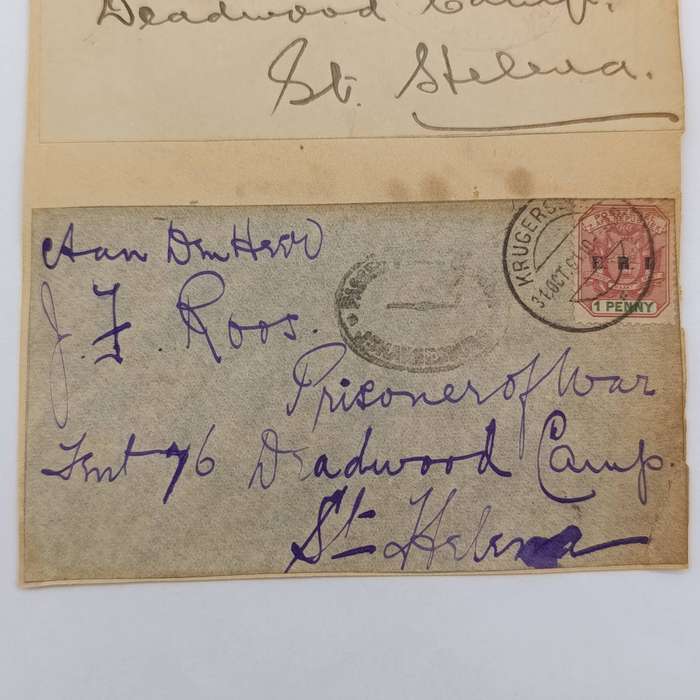 Deadwood Camp.
St. Helena.
Aan Den Heer
J. F. Roos.
Prisoner of War
Tent 76 Deadwood Camp.
St Helena
KRUGERS
31.OCT.01
E R I
1 PENNY
PASSED